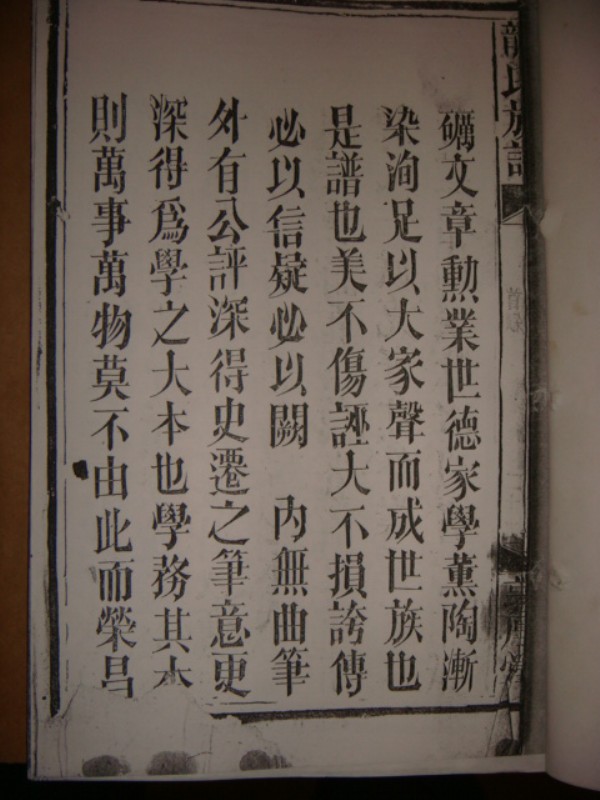 龍氏族譜
礪文章勳業世德家學薰陶漸
染洵足以大家聲而成世族也
是譜也美不傷誣大不損誇傳
必以信疑必以闕 內無曲筆
外有公評深得史遷之筆意更
深得爲學之大本也學務其本
則萬事萬物莫不由此而榮昌